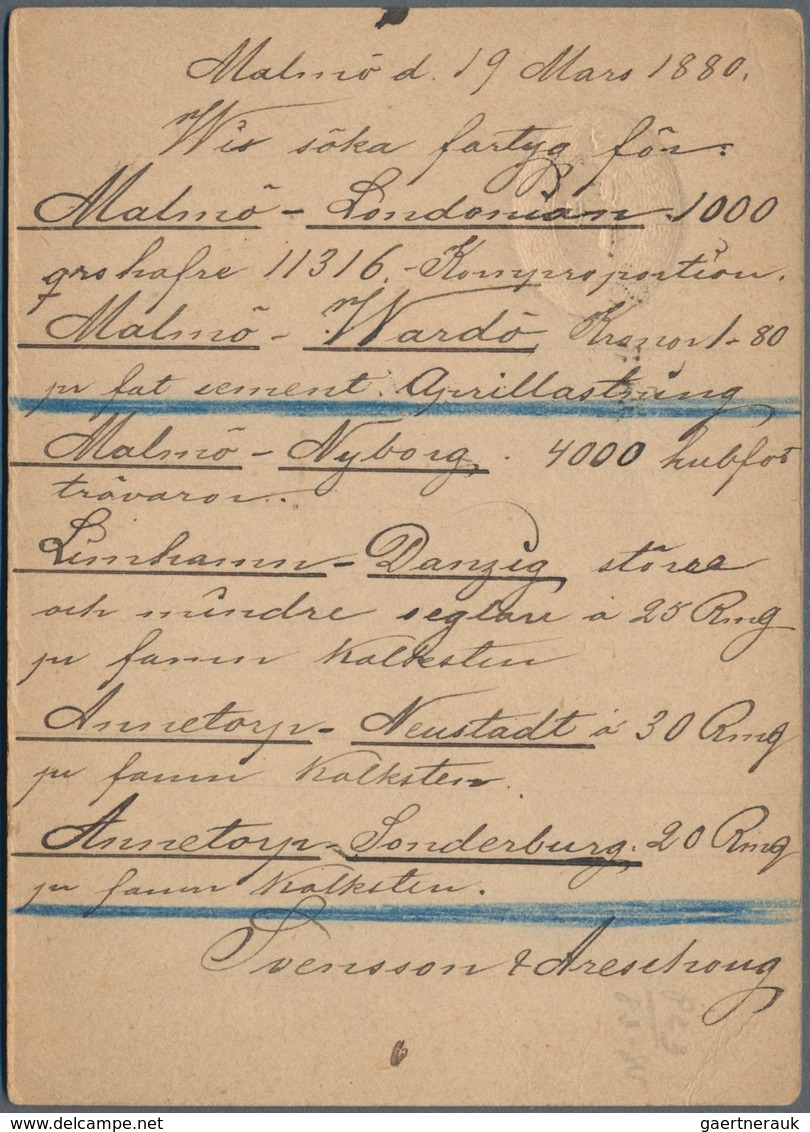 Malmö d. 19 Mars 1880.
Wis söka fartyg för:
Malmö - Londonian. 1000
qrs hafre 11316. Kornproportion.
Malmö - Wardö, Kronor 1-80
pr fat cement. Aprillastning
Malmö - Nyborg. 4000 kubfot
trävaror.
Limhamn - Danzig, större
och mindre seglare à 25 Rmg
pr famn Kalksten
Annetorp - Neustadt à 30 Rmg
pr famn Kalksten.
Annetorp - Sonderburg. 20 Rmg
pr famn Kalksten.
Svensson & Areschoug
gaertnerauk